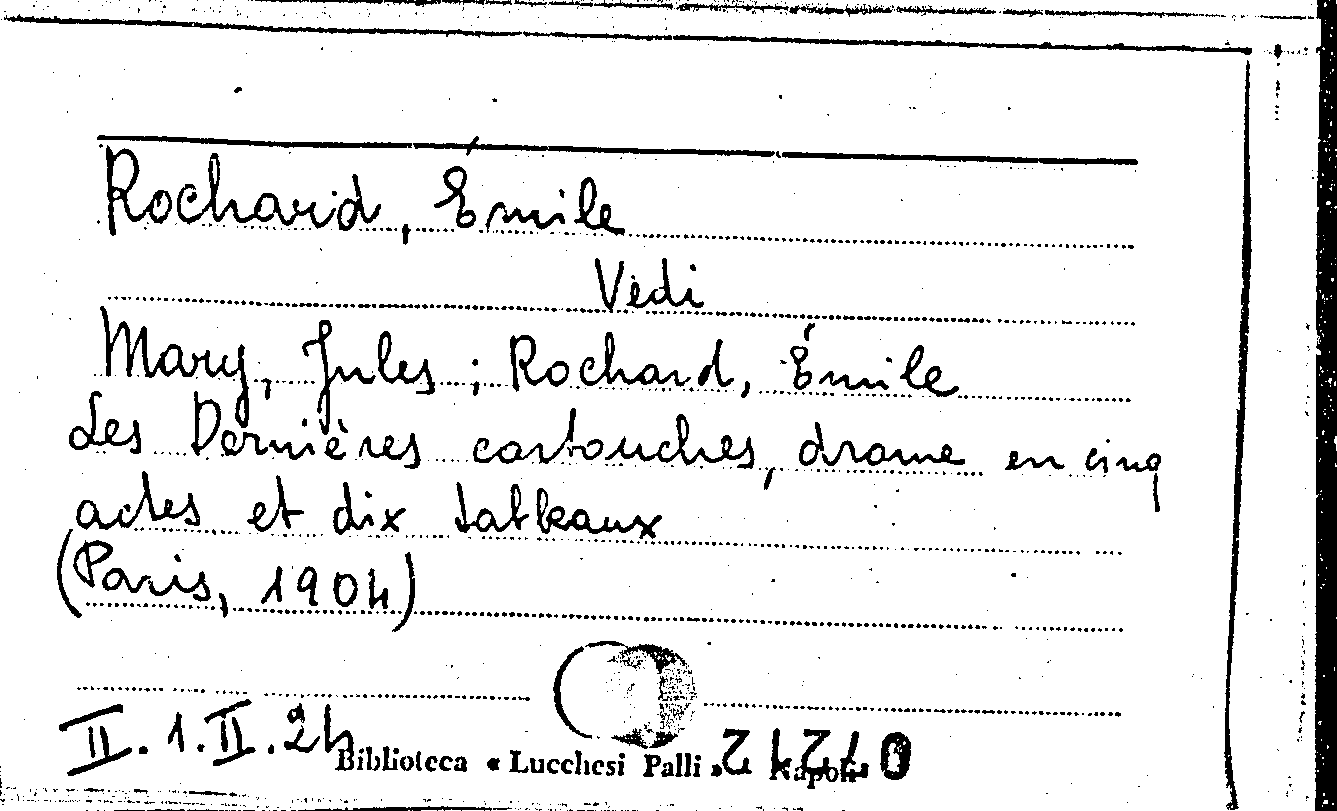 Rochard, Émile
Vedi
Mary, Jules ; Rochard, Émile
Les Dernières cartouches, drame en cinq
actes et dix tableaux
(Paris, 1904)
II. 1. II. 24
Biblioteca « Lucchesi Palli » Napoli